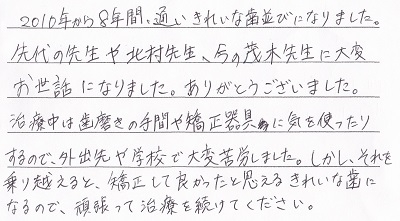 2010年から8年間、通いきれいな歯並びになりました。
先代の先生や北村先生、今の茂木先生に大変
お世話になりました。ありがとうございました。
治療中は歯磨きの手間や矯正器具に気を使ったり
するので、外出先や学校で大変苦労しました。しかし、それを
乗り越えると、矯正して良かったと思えるきれいな歯に
なるので、頑張って治療を続けてください。